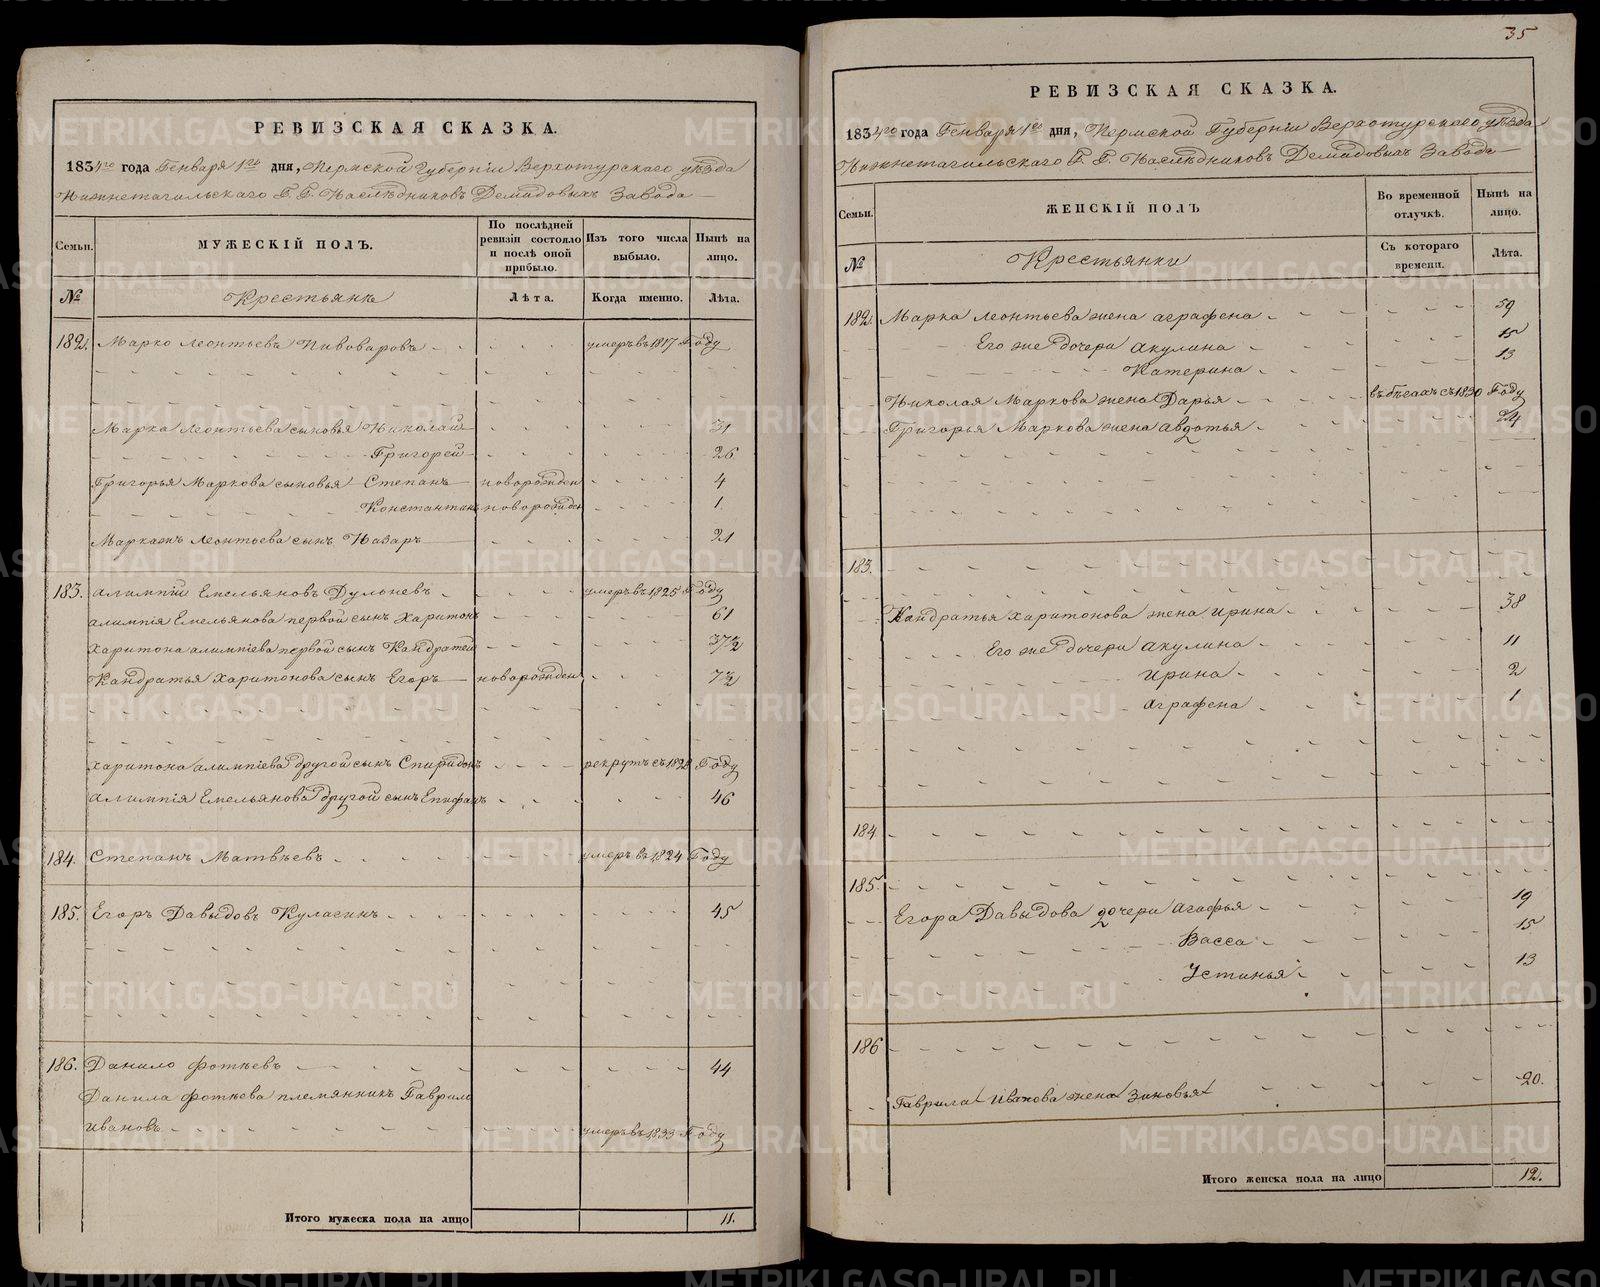 РЕВИЗСКАЯ СКАЗКА.
1834го года Генваря 1го дня, Пермской Губернiи Верхотурскаго уѣзда
Нижнетагильскаго Г. Г. Наслѣдниковъ Демидовыхъ Завода
Семьи.
МУЖЕСКIЙ ПОЛЪ.
По послѣдней ревизiи состояло и послѣ оной прибыло.
Изъ того числа выбыло.
Нынѣ на лицо.
№
Крестьяня
Лѣта.
Когда именно.
Лѣта.
182. Марко Леонтьевъ Пивоваровъ умеръ въ 1817 Году
Марка Леонтьева сыновья Николай 31
Григорей 26
Григорья Маркова сыновья Степанъ новорожден 4
Константинъ новорожден 1
Маркажъ Леонтьева сынъ Назаръ 21
183. Алимпiй Емельяновъ умеръ въ 1825 Году
Алимпiя Емельянова первой сынъ Харитонъ 61
Харитона Алимпiева первой сынъ Кандратей 37½
Кандратья Харитонова сынъ Егоръ новорожден 7½
Харитона Алимпiева другой сынъ Спиридонъ рекрутъ съ 1828 Году
Алимпiя Емельянова другой сынъ Епифанъ 46
184. Степанъ Матвѣевъ умеръ въ 1824 Году
185. Егоръ Давыдовъ Кулагинъ 45
186. Данило Фотѣевъ 44
Данила Фотѣева племянникъ Гаврило
Ивановъ умеръ въ 1833 Году
Итого мужеска пола на лицо 11.
35
РЕВИЗСКАЯ СКАЗКА.
1834го года Генваря 1го дня, Пермской Губернiи Верхотурскаго уѣзда
Нижнетагильскаго Г. Г. Наслѣдниковъ Демидовыхъ Завода
Семьи.
ЖЕНСКIЙ ПОЛЪ
Во временной отлучкѣ.
Нынѣ на лицо.
№
Крестьянки
Съ котораго времени.
Лѣта.
182. Марка Леонтьева жена Аграфена 59
Его же дочери Акулина 15
Катерина 13
Николая Маркова жена Дарья въ бѣгахъ съ 1830 Году
Григорья Маркова жена Авдотья 24
183.
Кандратья Харитонова жена Ирина 38
Его же дочери Акулина 11
Ирина 2
Аграфена 1
184.
185.
Егора Давыдова дочери Агафья 19
Васса 15
Устинья 13
186
Гаврила Иванова жена Зиновья 20.
Итого женска пола на лицо 12.
METRIKI.GASO-URAL.RU